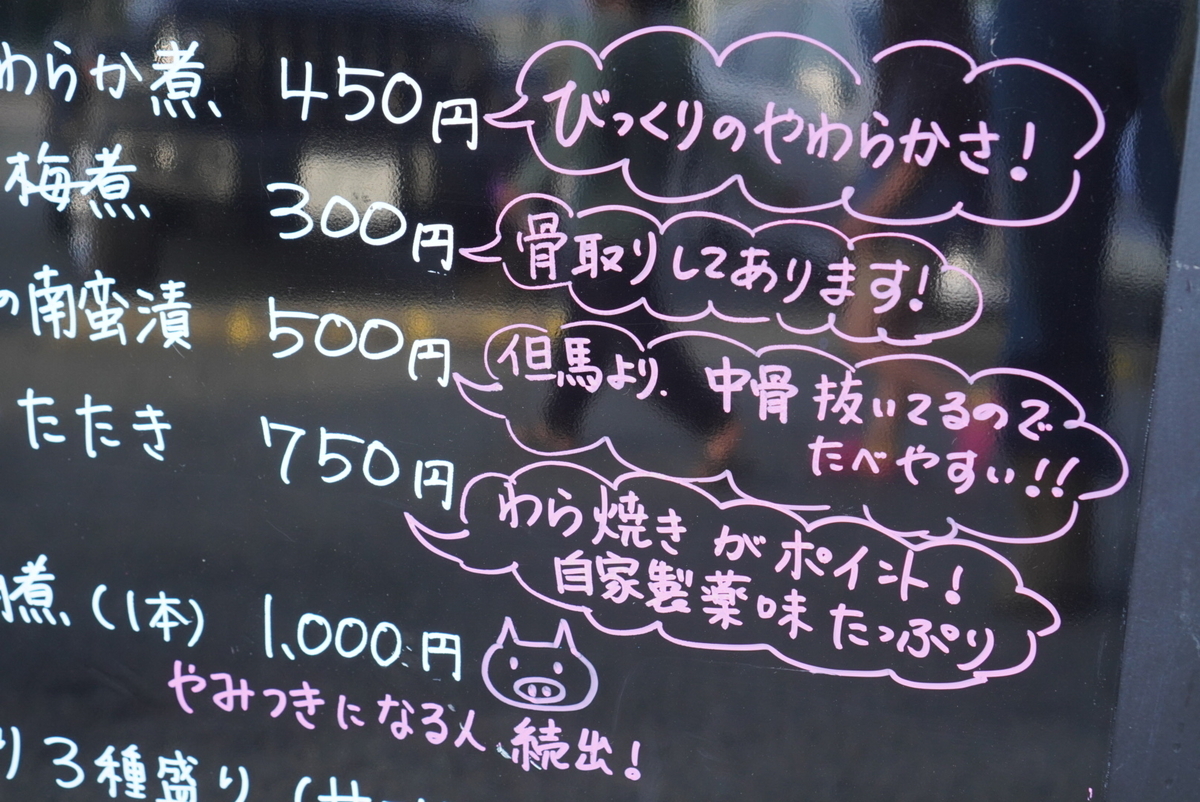 わらか煮 450円
びっくりのやわらかさ!
梅煮 300円
骨取りしてあります!
の南蛮漬 500円
但馬より、中骨抜いてるので
たべやすい!!
たたき 750円
わら焼きがポイント!
自家製薬味たっぷり
煮(1本) 1,000円
やみつきになる人続出!
り3種盛り(サ